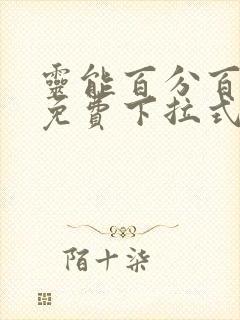 靈能百分百
免費下拉式
陌十柒